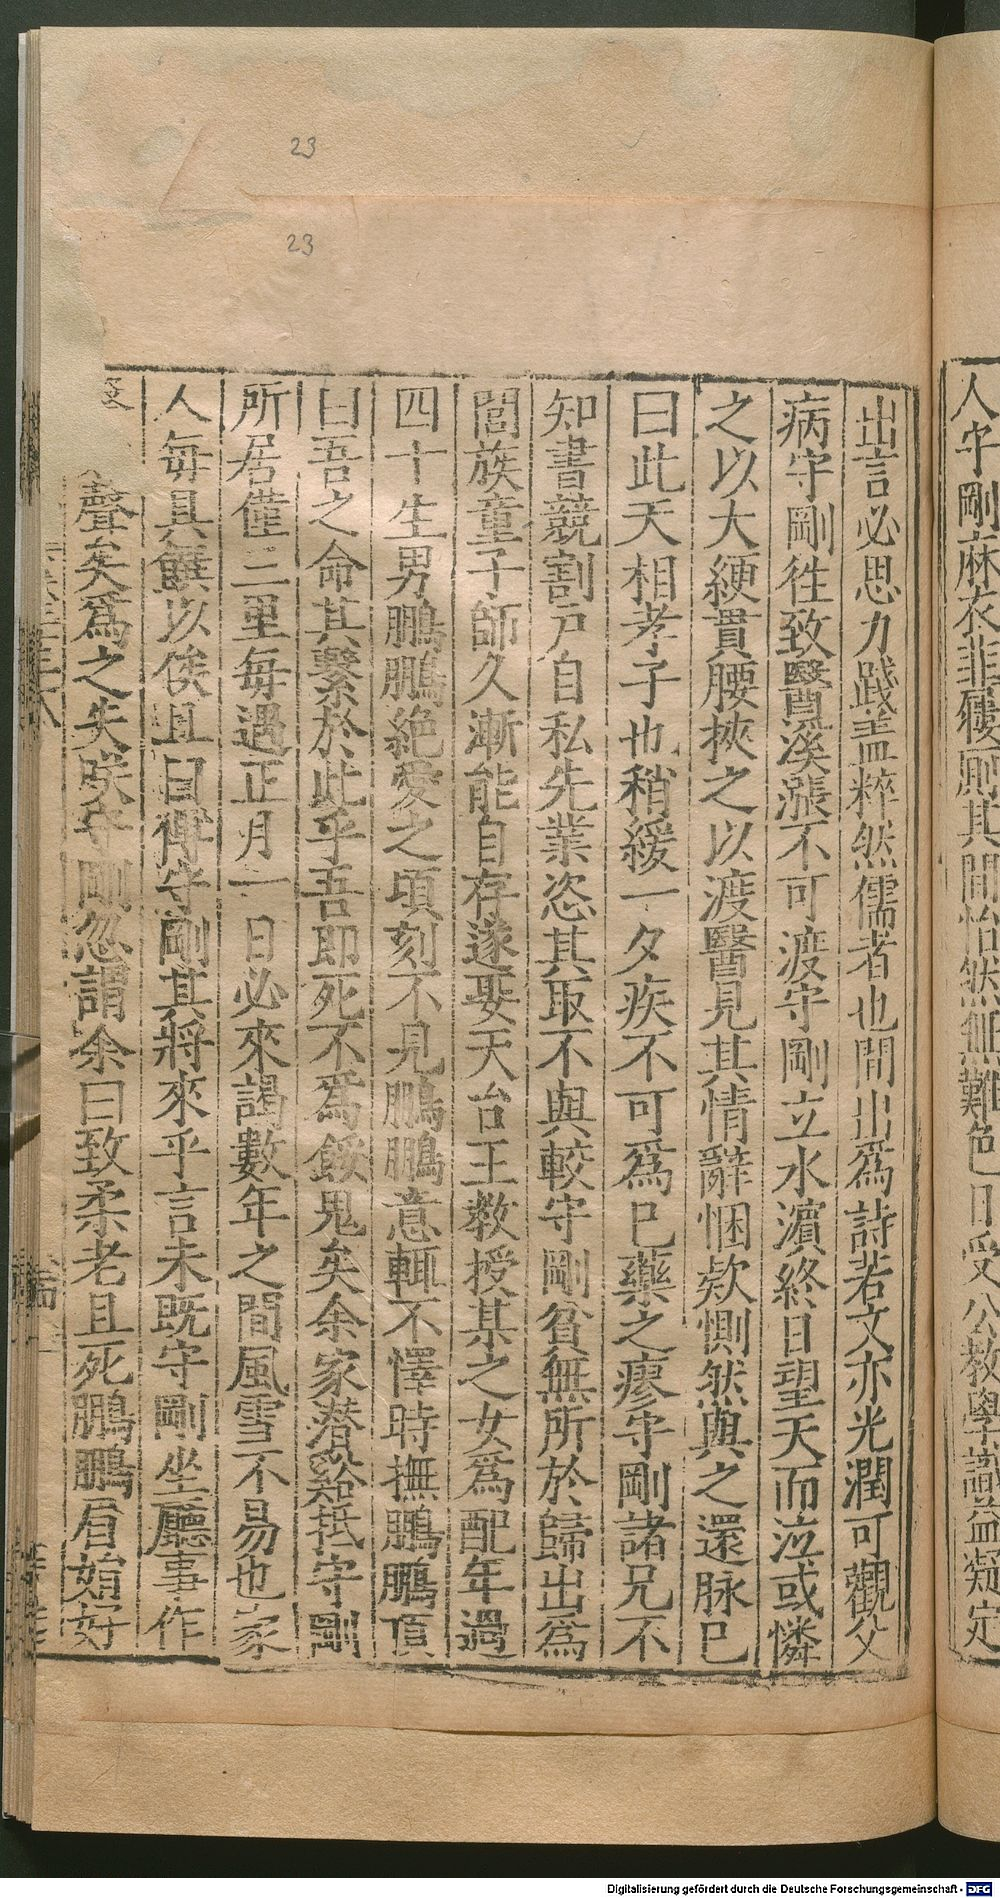 人守剛麻衣韭屨廁其間怡然無難色日受公教學識益凝定
出言必思力踐盎粹然儒者也間出爲詩若文亦光潤可觀父
病守剛徃致醫溪漲不可渡守剛立水濵終日望天而泣或憐
之以大綆貫腰挾之以渡醫見其情辭悃欵惻然與之還脉已
曰此天相孝子也稍緩一夕疾不可爲巳藥之瘳守剛諸兄不
知書競割戸自私先業恣其取不與較守剛貧無所於歸出爲
閭族童子師久漸能自存遂娶天台王教授某之女爲配年過
四十生男鵬鵬絶愛之頃刻不見鵬鵬意輒不懌時撫鵬鵬頂
曰吾之命其繫於此乎吾即死不爲餒鬼矣余家潜谿抵守剛
所居僅三里每遇正月一日必來謁數年之間風雪不易也家
人每具饌以俟且曰傅守剛其將來乎言未既守剛坐廳事作
聲矣爲之失咲守剛忽謂余曰致柔老且死鵬鵬眉始好
23
23
Digitalisierung gefördert durch die Deutsche Forschungsgemeinschaft - DFG